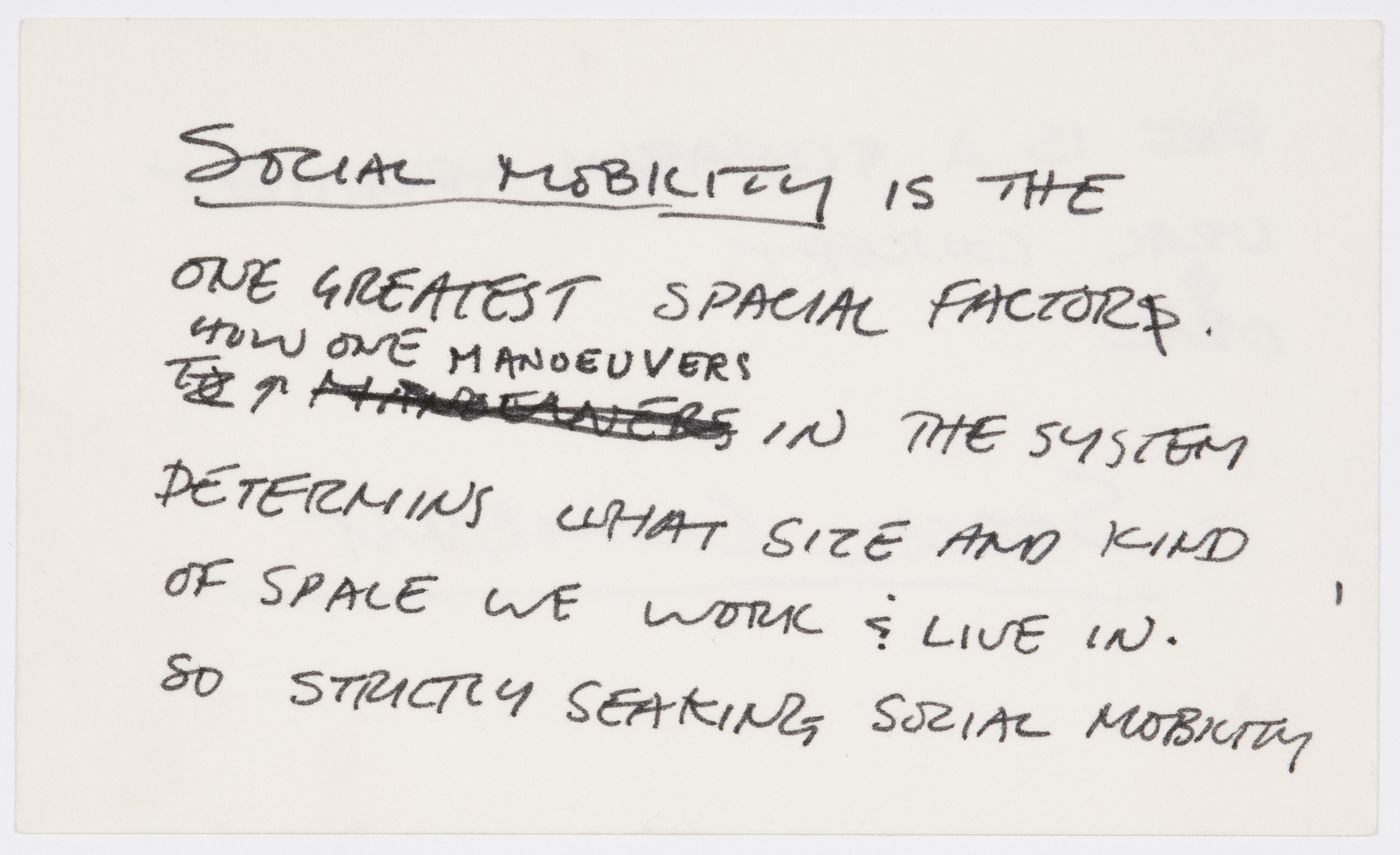 SOCIAL MOBILITY IS THE
ONE GREATEST SPACIAL FACTOR.
HOW ONE MANOEUVERS
IN THE SYSTEM
DETERMINS WHAT SIZE AND KIND
OF SPACE WE WORK & LIVE IN.
SO STRICTLY SEAKING SOCIAL MOBILITY